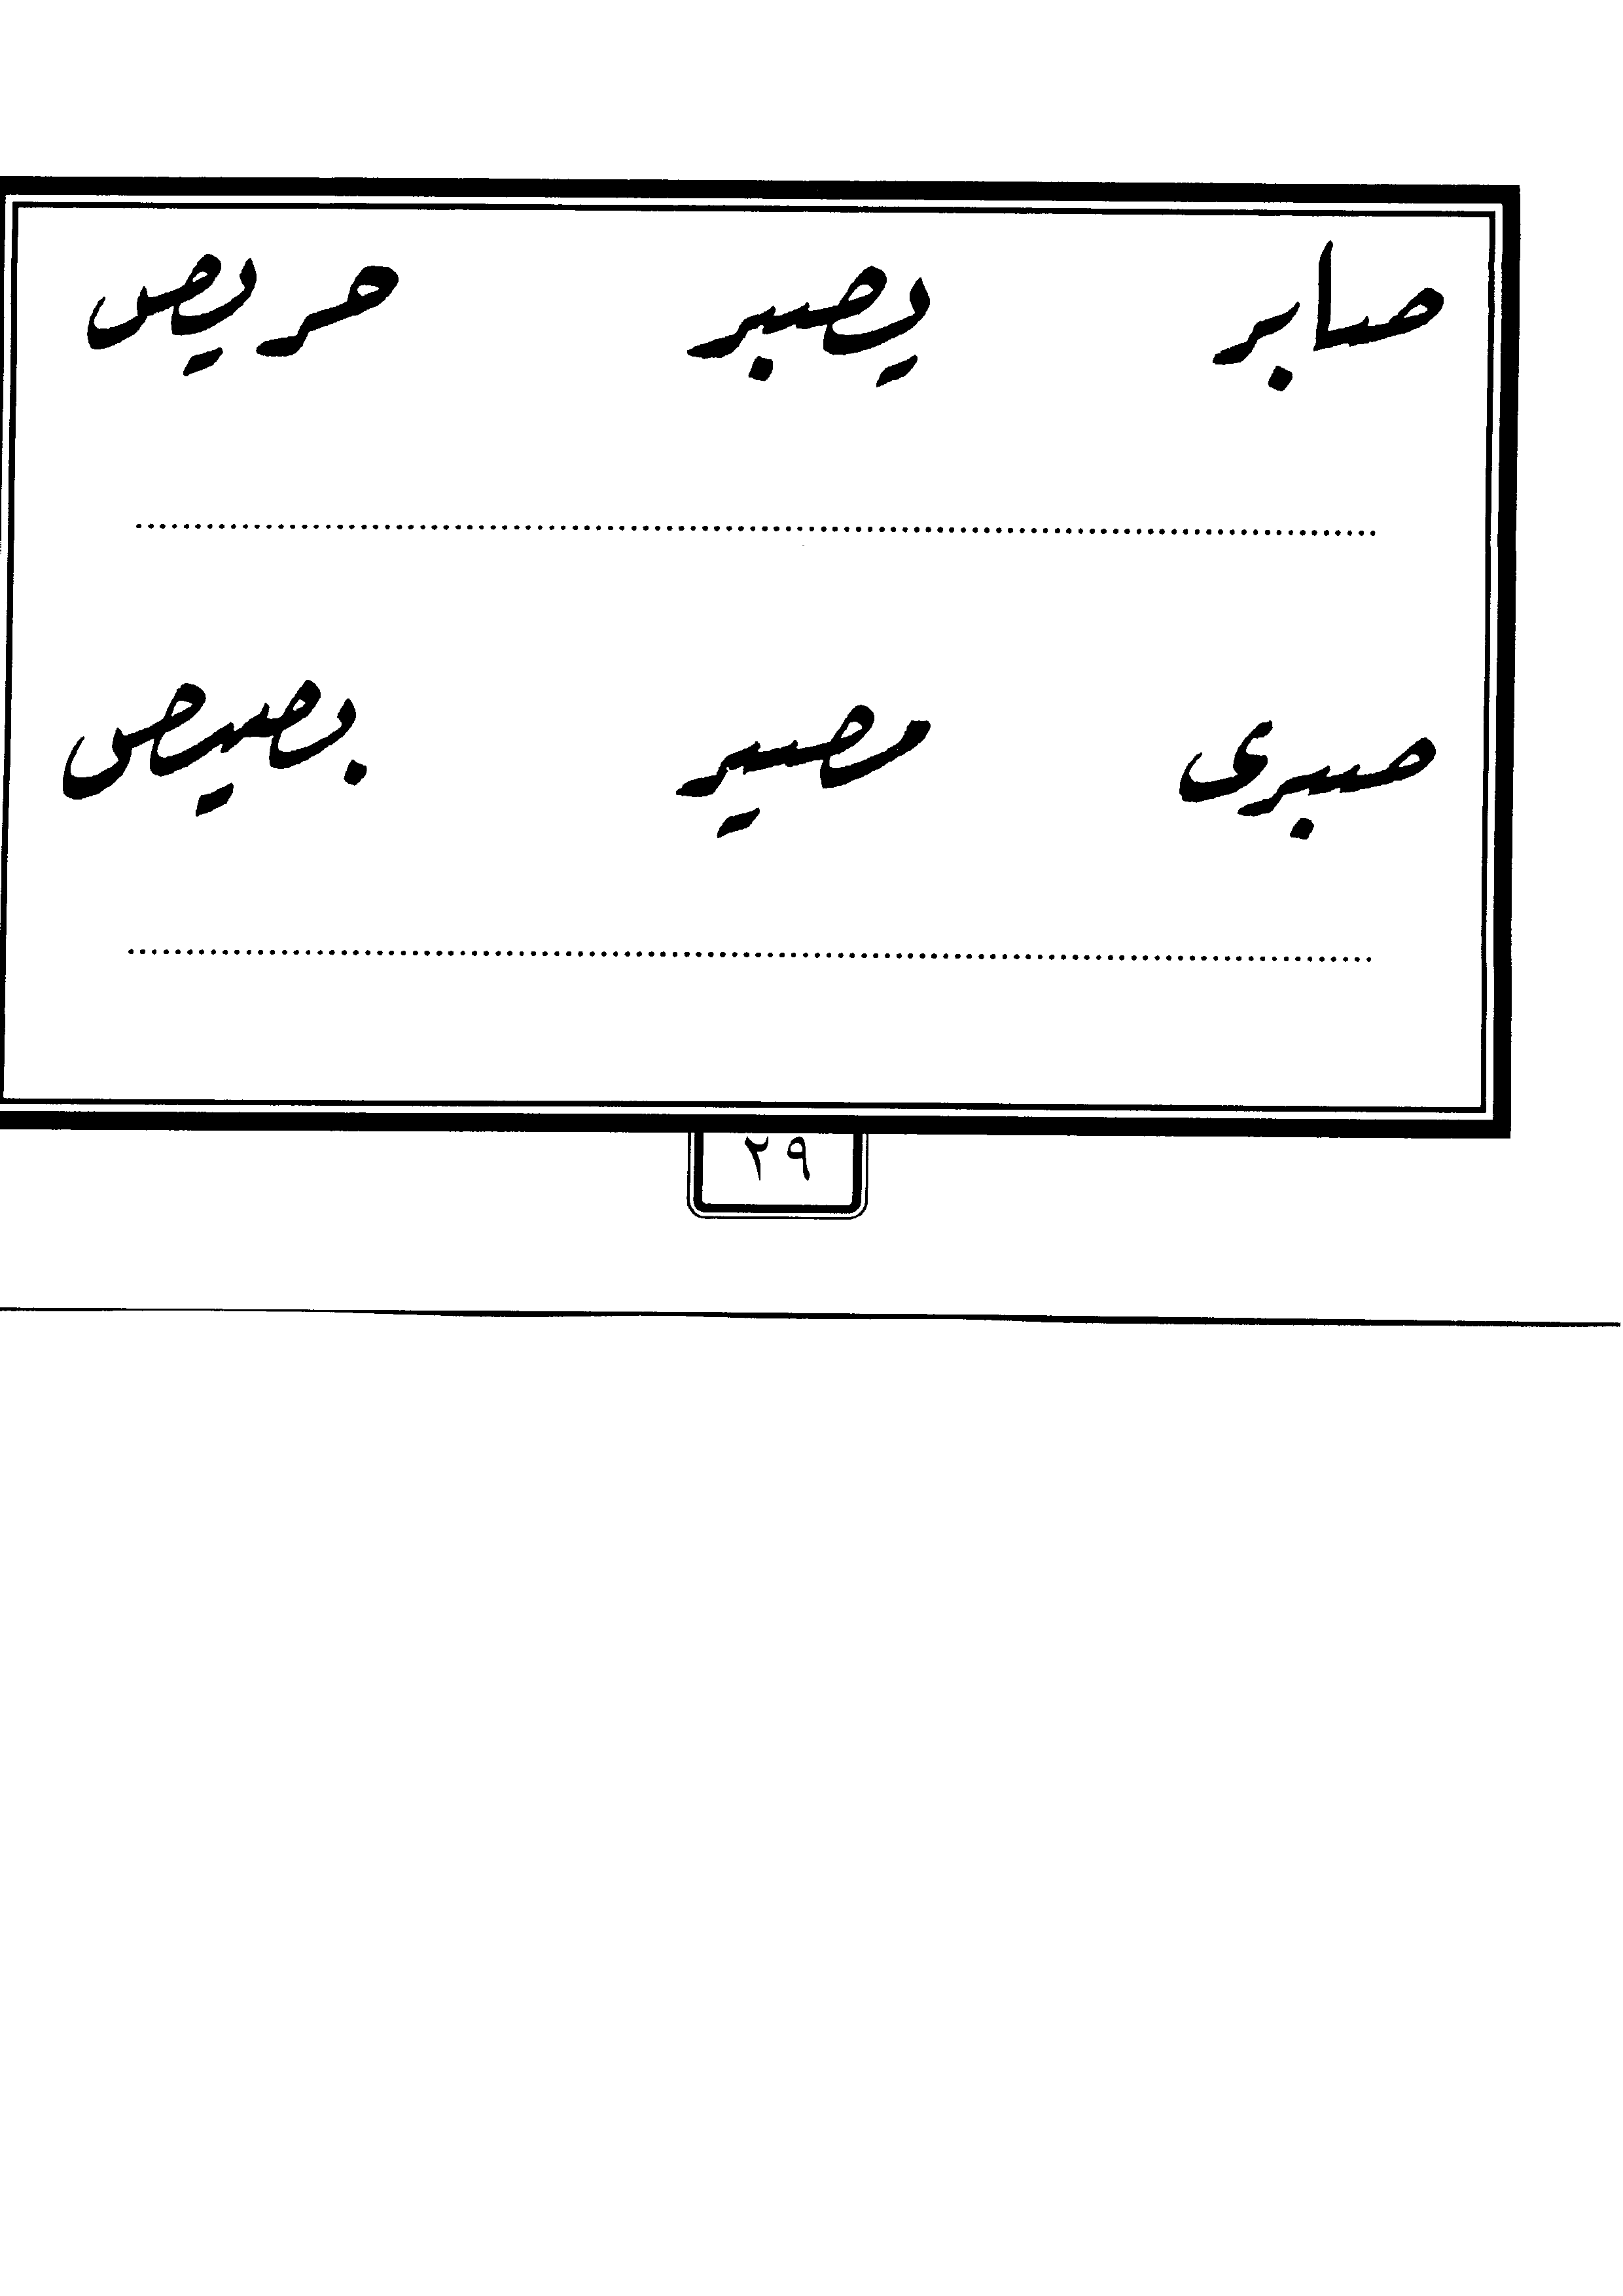 صابر يصبر حريص
صبرى مصير بصيص
٢٩